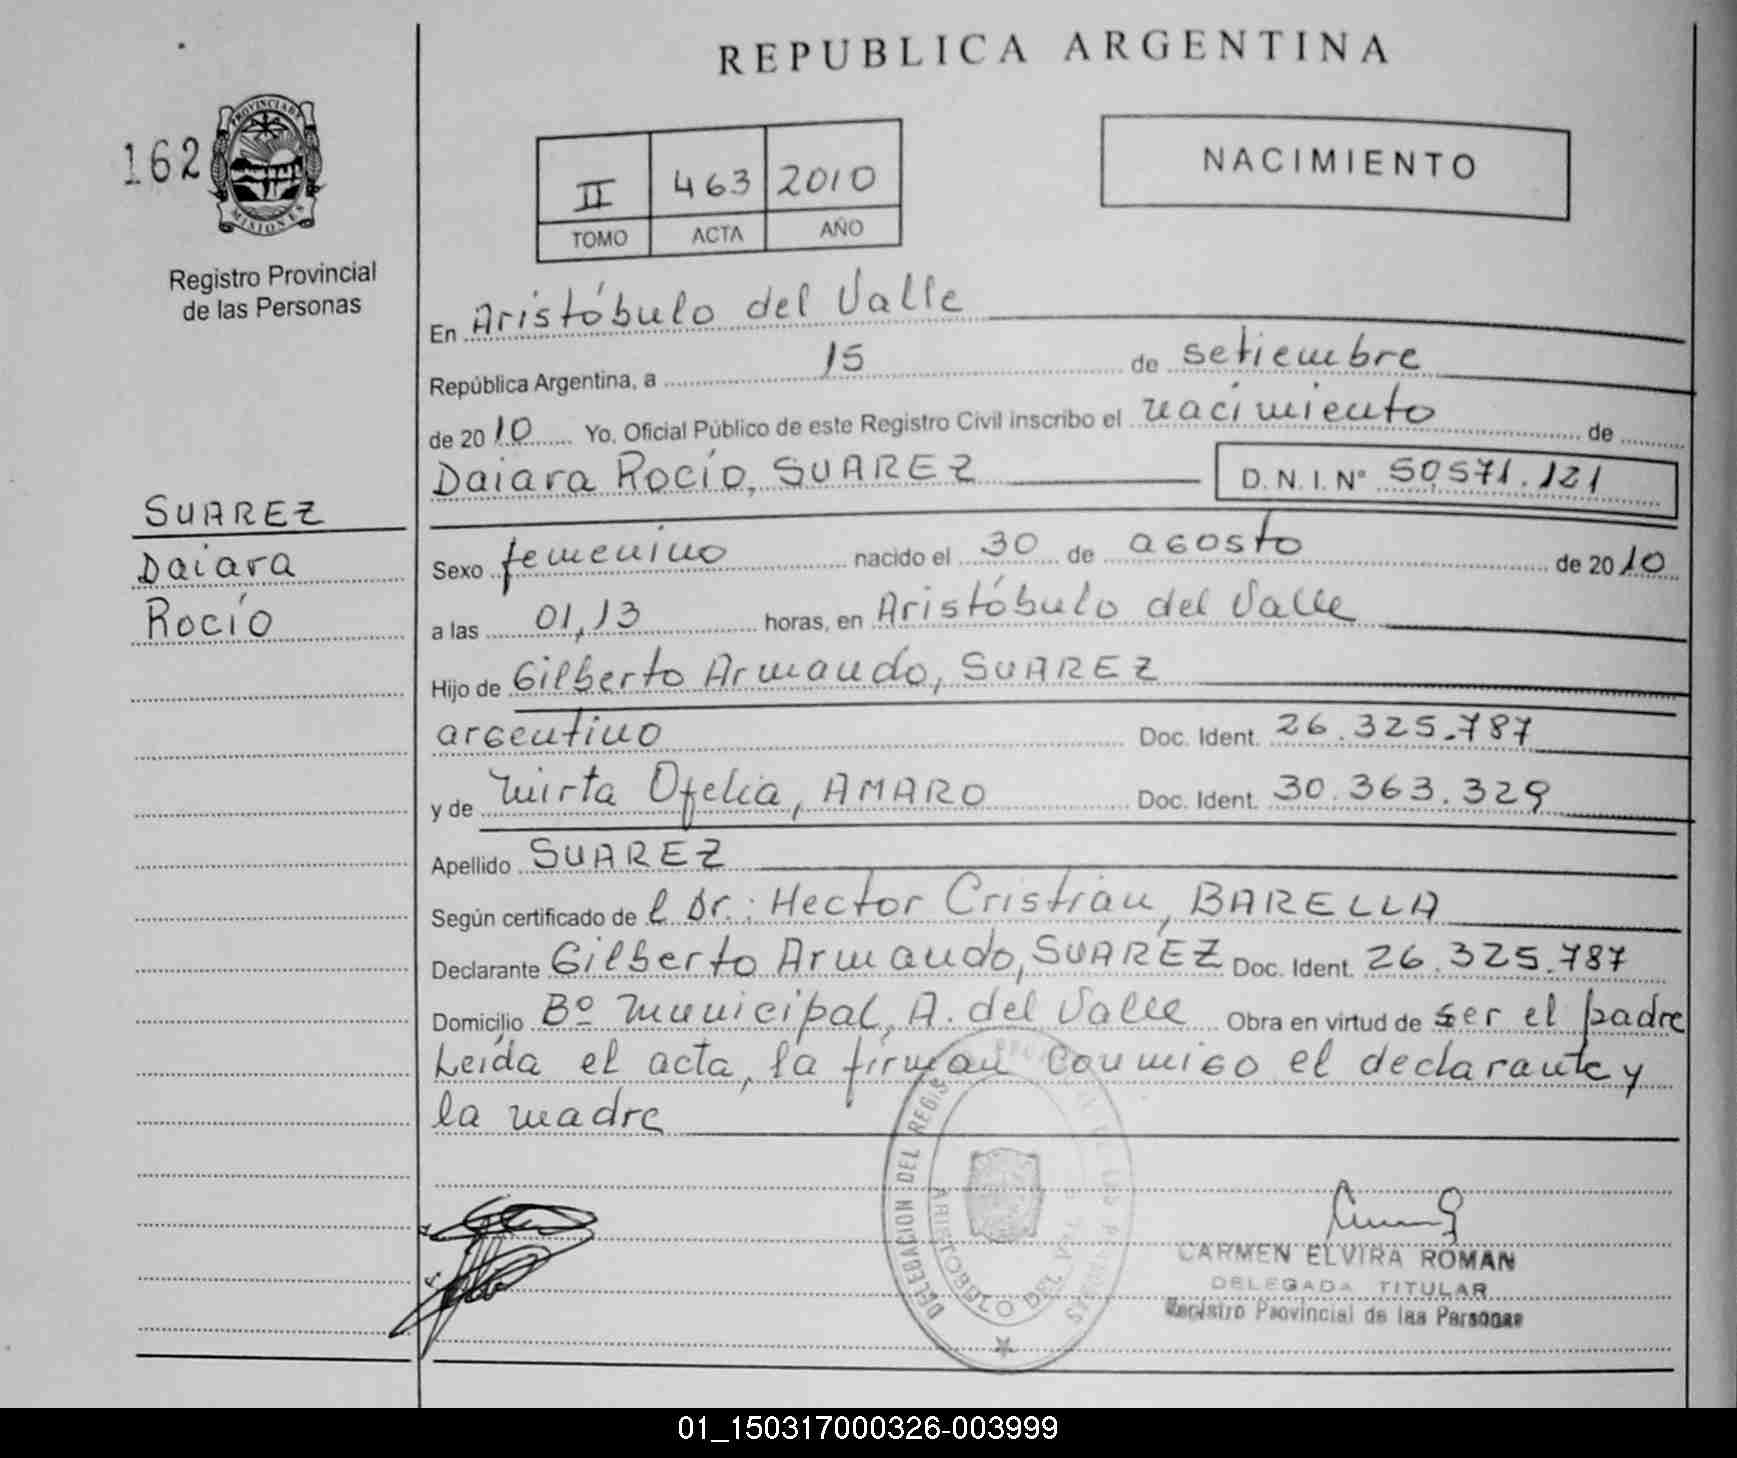 REPUBLICA ARGENTINA
162
PROVINCIA DE
MISIONES
Registro Provincial
de las Personas
II 463 2010
TOMO ACTA AÑO
NACIMIENTO
En Aristóbulo del Valle
República Argentina, a 15 de setiembre
de 2010 Yo, Oficial Público de este Registro Civil inscribo el nacimiento de
Daiara Rocío, SUAREZ D.N.I. Nº 50571.121
SUAREZ
Daiara
Rocío
Sexo femenino nacido el 30 de agosto de 2010
a las 01,13 horas, en Aristóbulo del Valle
Hijo de Gilberto Armando, SUAREZ
argentino Doc. Ident. 26.325.787
y de Mirta Ofelia, AMARO Doc. Ident. 30.363.329
Apellido SUAREZ
Según certificado de l Dr.: Hector Cristian, BARELLA
Declarante Gilberto Armando, SUAREZ Doc. Ident. 26.325.787
Domicilio Bº Municipal, A. del Valle Obra en virtud de ser el padre
Leída el acta, la firman conmigo el declarante y
la madre
DELEGACION DEL REGIS PROVINCIAL DE LAS PERSONAS
ARISTOBULO DEL VALLE
CARMEN ELVIRA ROMAN
DELEGADA TITULAR
Registro Provincial de las Personas
01_150317000326-003999